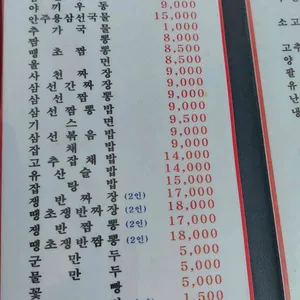 야끼우동 9,000
안주용삼선국물 15,000
추가국물 1,000
짬뽕 8,000
땡초짬뽕 8,500
울면 8,500
사천짜장 9,000
삼선간짜장 9,000
삼선짬뽕 9,000
삼선짬뽕밥 9,000
기스면 9,500
삼선볶음밥 9,000
잡채밥 9,000
고추잡채밥 14,000
유산슬밥 14,000
잡탕밥 15,000
쟁반짜장 (2인) 17,000
땡초쟁반짜장 (2인) 18,000
쟁반짬뽕 (2인) 17,000
땡초쟁반짬뽕 (2인) 18,000
군만두 5,000
물만두 5,000
꽃빵 5,000
1,500
소
고
고
양
팔
유
난
냉